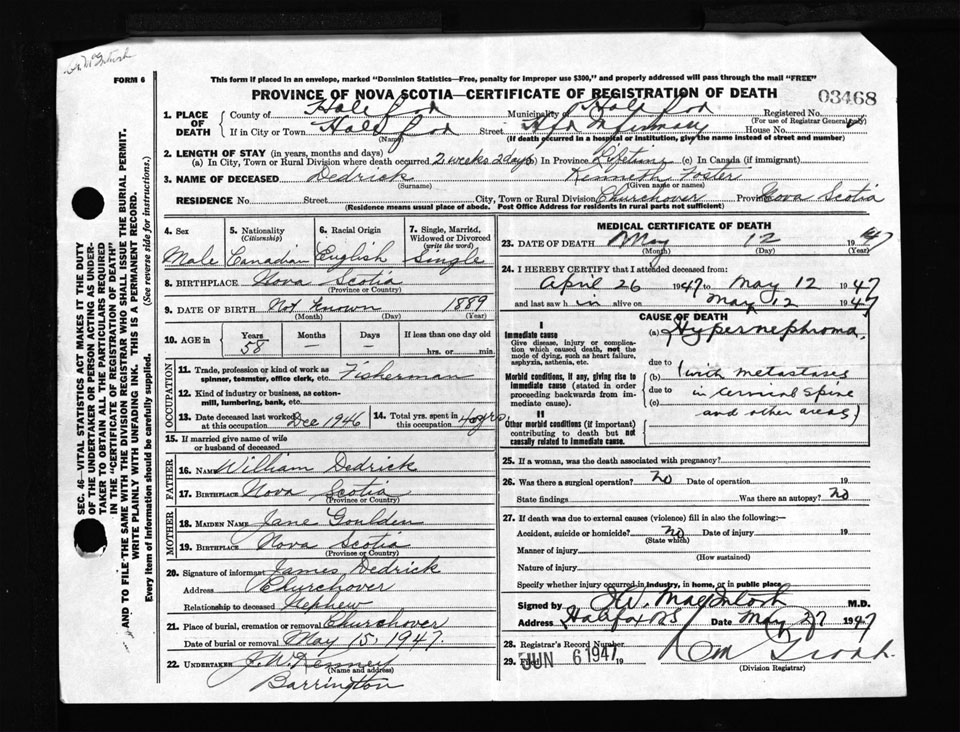 Dr. McIntosh
FORM 6
This form if placed in an envelope, marked "Dominion Statistics—Free, penalty for improper use $300," and properly addressed will pass through the mail "FREE"
PROVINCE OF NOVA SCOTIA—CERTIFICATE OF REGISTRATION OF DEATH
03468
1. PLACE OF DEATH
County of
Municipality
Registered No.
(For use of Registrar General only)
If in City or Town
(Name)
Street
House No.
(If death occurred in a hospital or institution, give the name instead of street and number)
2. LENGTH OF STAY (in years, months and days)
(a) In City, Town or Rural Division where death occurred 2 weeks 2 days (b) in Province Lifetime (c) In Canada (if immigrant)
3. NAME OF DECEASED Dedrick Kenneth Foster
(Surname) (Given name or names)
RESIDENCE No. Street City, Town or Rural Division Churchover Province Nova Scotia
(Residence means usual place of abode. Post Office Address for residents in rural parts not sufficient)
4. Sex
Male
5. Nationality
(Citizenship)
Canadian
6. Racial Origin
English
7. Single, Married, Widowed or Divorced
(write the word)
Single
8. BIRTHPLACE Nova Scotia
(Province or Country)
9. DATE OF BIRTH Not Known 1889
(Month) (Day) (Year)
10. AGE in
Years Months Days If less than one day old
58 – – hrs. or min.
OCCUPATION
11. Trade, profession or kind of work as spinner, teamster, office clerk, etc. Fisherman
12. Kind of industry or business, as cotton-mill, lumbering, bank, etc.
13. Date deceased last worked at this occupation Dec 1946
14. Total yrs. spent in this occupation 40 yrs.
15. If married give name of wife or husband of deceased
FATHER
16. NAME William Dedrick
17. BIRTHPLACE Nova Scotia
(Province or Country)
MOTHER
18. MAIDEN NAME Jane Goulden
19. BIRTHPLACE Nova Scotia
(Province or Country)
20. Signature of informant James Dedrick
Address Churchover
Relationship to deceased Nephew
21. Place of burial, cremation or removal Churchover
Date of burial or removal May 15, 1947
22. UNDERTAKER J. W. Kenney
(Name and address)
Barrington
MEDICAL CERTIFICATE OF DEATH
23. DATE OF DEATH May 12 1947
(Month) (Day) (Year)
24. I HEREBY CERTIFY that I attended deceased from:
April 26 1947 to May 12 1947
and last saw h im alive on May 12 1947
CAUSE OF DEATH
I
Immediate cause
Give disease, injury or complication which caused death, not the mode of dying, such as heart failure, asphyxia, asthenia, etc.
(a) Hypernephroma,
due to
Morbid conditions, if any, giving rise to immediate cause (stated in order proceeding backwards from immediate cause).
(b) (with metastases
due to
in cervical spine
(c)
and other areas)
II
Other morbid conditions (if important) contributing to death but not causally related to immediate cause.
25. If a woman, was the death associated with pregnancy?
26. Was there a surgical operation? No Date of operation 19
State findings Was there an autopsy? No
27. If death was due to external causes (violence) fill in also the following:—
Accident, suicide or homicide? No Date of injury 19
(State which)
Manner of injury
(How sustained)
Nature of injury
Specify whether injury occurred in industry, in home, or in public place
Signed by H.W. MacIntosh M.D.
Address Halifax NS Date May 27 1947
28. Registrar's Record Number
29. Filed JUN 6 1947 19
(Division Registrar)
SEC. 46—VITAL STATISTICS ACT MAKES IT THE DUTY
OF THE UNDERTAKER OR PERSON ACTING AS UNDER-
TAKER TO OBTAIN ALL THE PARTICULARS REQUIRED
IN THE "CERTIFICATE OF REGISTRATION OF DEATH"
AND TO FILE THE SAME WITH THE DIVISION REGISTRAR WHO SHALL ISSUE THE BURIAL PERMIT.
WRITE PLAINLY WITH UNFADING INK. THIS IS A PERMANENT RECORD.
Every item of information should be carefully supplied. (See reverse side for instructions.)